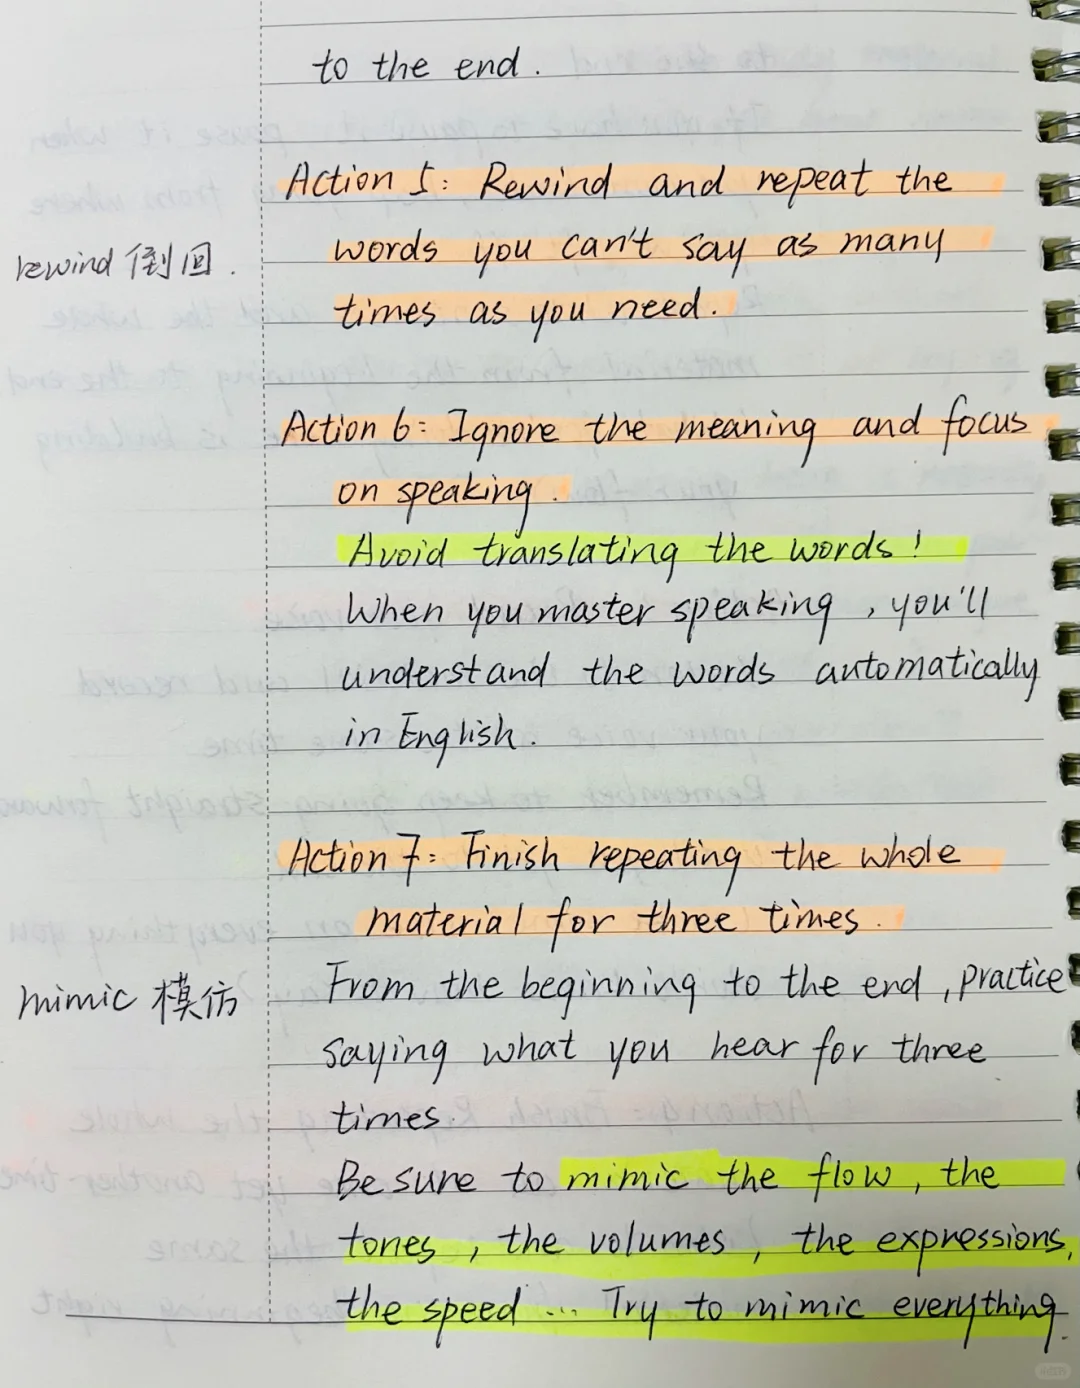 to the end.
Action 5: Rewind and repeat the
rewind 倒回.
words you can't say as many
times as you need.
Action 6: Ignore the meaning and focus
on speaking.
Avoid translating the words!
When you master speaking, you'll
understand the words automatically
in English.
Action 7: Finish repeating the whole
material for three times.
mimic 模仿
From the beginning to the end, practice
saying what you hear for three
times.
Be sure to mimic the flow, the
tones, the volumes, the expressions,
the speed... Try to mimic everything.